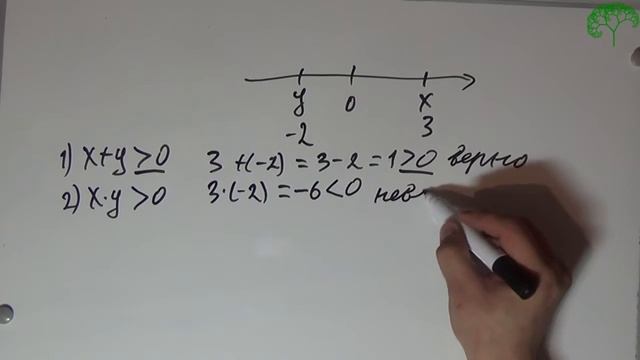 y 0 x
-2 3
1) x+y>0 3+(-2)=3-2=1>0 верно
2) x·y>0 3·(-2)=-6<0